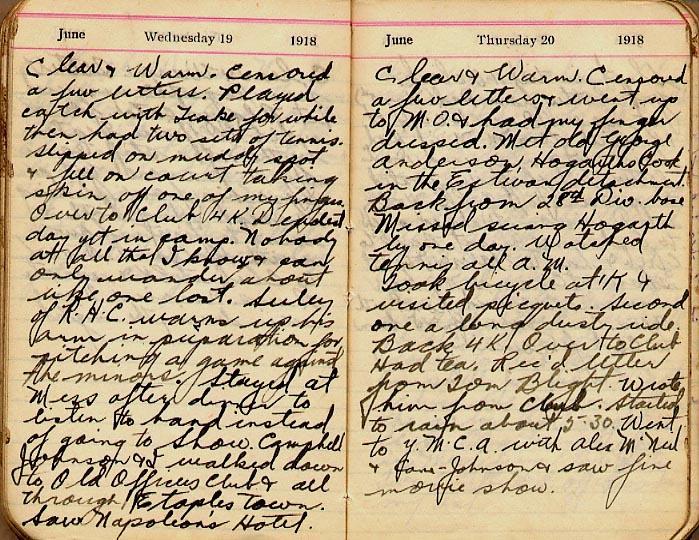 June Wednesday 19 1918
Clear & Warm. Censored
a few letters. Played
catch with for while
then had two sets of tennis.
Slipped on muddy spot
& fell on court taking
skin off one of my fingers.
Over to Club 4 K. Deadest
day yet in camp. Nobody
at all that I know & can
only wander about
like one lost. Suley
of R.H.C. warms up his
arm in preparation for
pitching a game against
the minors. Stayed at
Mess after dinner to
listen to band instead
of going to show. Campbell
Johnson & I walked down
to Old Officers Club & all
through Etaples town.
Saw Napoleon's Hotel.
June Thursday 20 1918
Clear & Warm. Censored
a few letters & went up
to M.O. & had my finger
dressed. Met old George
Anderson, Hogarths Cook
in the detachment.
Back from 2nd Div. base
Missed seeing Hogarth
by one day. Watched
tennis all a.m.
Took bicycle at K &
visited picquets. Second
one a long dusty ride.
Back 4 K. Over to Club
Had tea. Rec'd letter
from Tom Blight. Wrote
him from Club. Started
to rain about 5-30. Went
to Y.M.C.A. with Alex McNeil
& Johnson & saw fine
movie show.